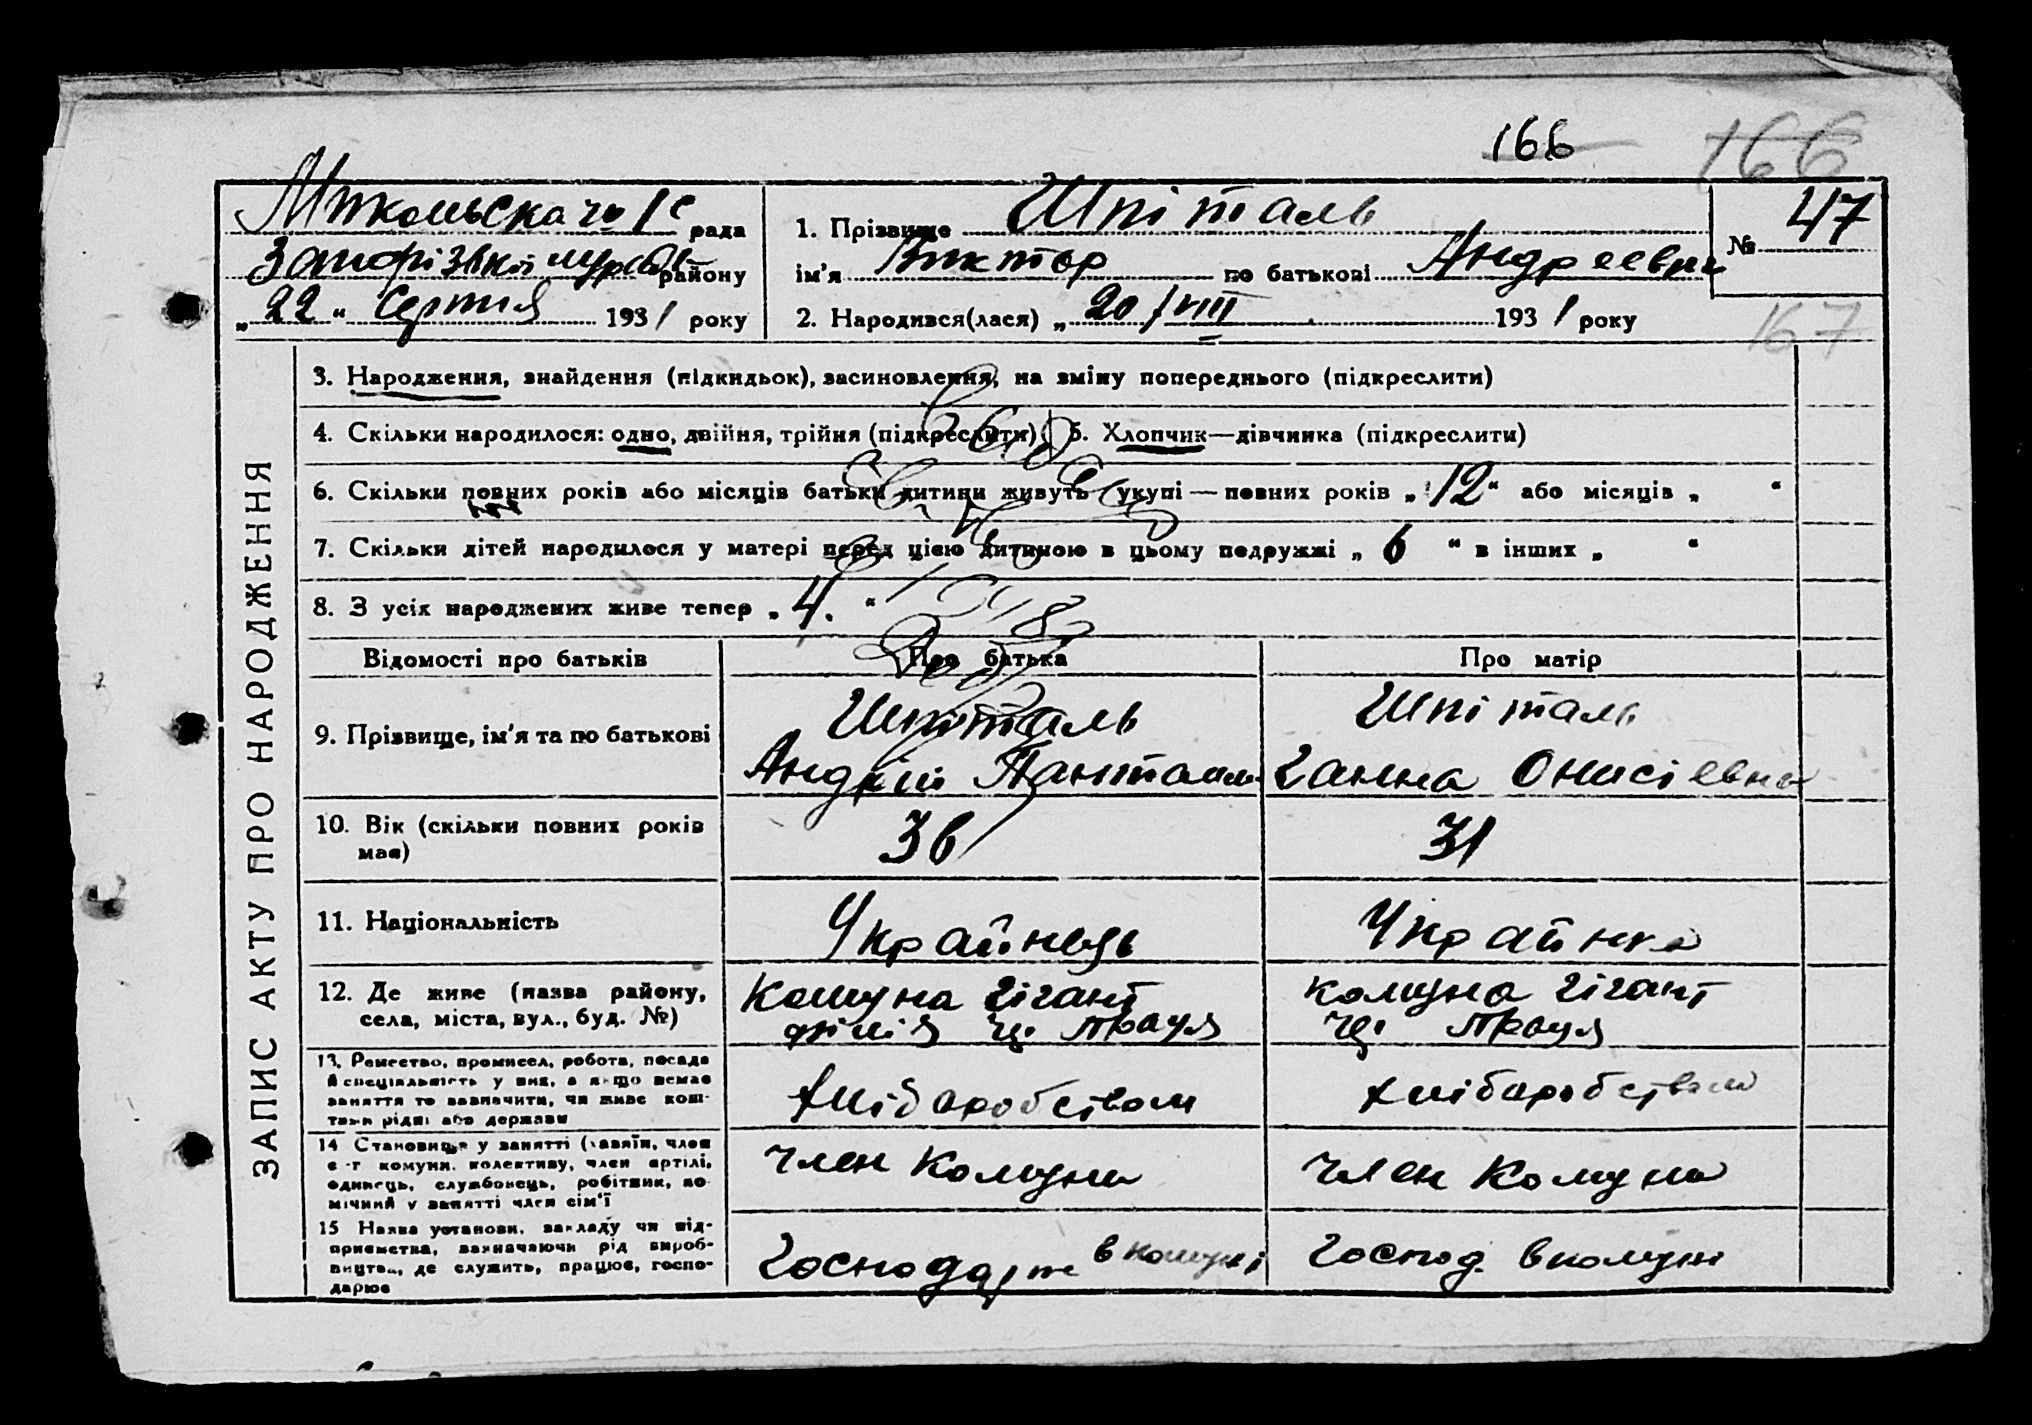 166 166
Микольська рада
1. Прізвище Шпіталь
№ 47
району
ім'я Виктор по батькові Андреевич
„22“ Серпня 1931 року
2. Народився(лася) „20/VIII 1931 року
167
ЗАПИС АКТУ ПРО НАРОДЖЕННЯ
3. Народження, знайдення (підкидьок), засиновлення, на зміну попереднього (підкреслити)
4. Скільки народилося: одно, двійня, трійня (підкреслити) 5. Хлопчик—дівчинка (підкреслити)
6. Скільки повних років або місяців батьки дитини живуть укупі — повних років „12“ або місяців „ “
7. Скільки дітей народилося у матері перед цією дитиною в цьому подружжі „6“ в інших „ “
8. З усіх народжених живе тепер „4.“
Відомості про батьків Про батька Про матір
9. Прізвище, ім'я та по батькові
Шпіталь Шпіталь
Андрій Ганна Онисіевна
10. Вік (скільки повних років має) 36 31
11. Національність Украйнець Украйнка
12. Де живе (назва району, села, міста, вул., буд. №)
Комуна Гігант комуна Гігант
філія Праця Праця
13. Ремество, промисел, робота, посада й спеціальність у них, а якщо немає заняття то зазначити, чи живе коштами рідні або держави
хліборобством хліборобством
14 Становище у занятті (хазяїн, член с-г комуни, колективу, член артілі, одинець, службовець, робітник, помічний у занятті член сім'ї
член комуни член комуни
15 Назва установи, закладу чи підприємства, зазначаючи рід виробництва, де служить, працює, господарює
в комуні Господ. в комуні